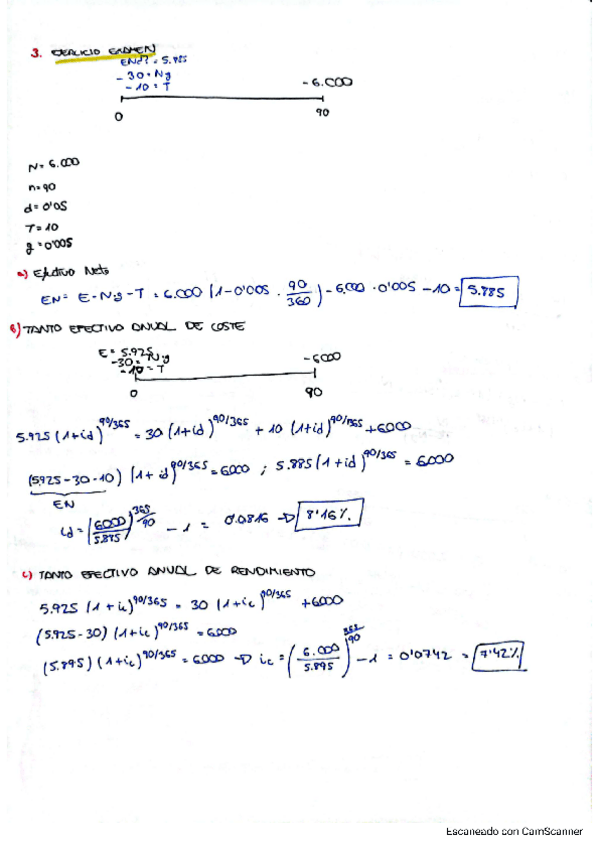 3. EJERCICIO EXAMEN
ENd? = 5.985
- 30 = Ng
- 10 = T
- 6.000
0
90
N = 6.000
n = 90
d = 0'05
T = 10
g = 0'005
a) Efectivo Neto
EN = E - Ng - T = 6.000 (1 - 0'005 · 90/360) - 6.000 · 0'005 - 10 = 5.885
b) TANTO EFECTIVO ANUAL DE COSTE
E = 5.925
-30 = Ng
-10 = T
-6000
0
90
5.925 (1+id)^90/365 = 30 (1+id)^90/365 + 10 (1+id)^90/365 + 6000
(5925 - 30 - 10) (1+id)^90/365 = 6000 ; 5.885 (1+id)^90/365 = 6000
EN
id = (6000/5.885)^365/90 - 1 = 0.0816 → 8'16%.
c) TANTO EFECTIVO ANUAL DE RENDIMIENTO
5.925 (1+ic)^90/365 = 30 (1+ic)^90/365 + 6000
(5.925 - 30) (1+ic)^90/365 = 6000
(5.895) (1+ic)^90/365 = 6000 → ic = (6.000/5.895)^365/90 - 1 = 0'0742 = 7'42%
Escaneado con CamScanner